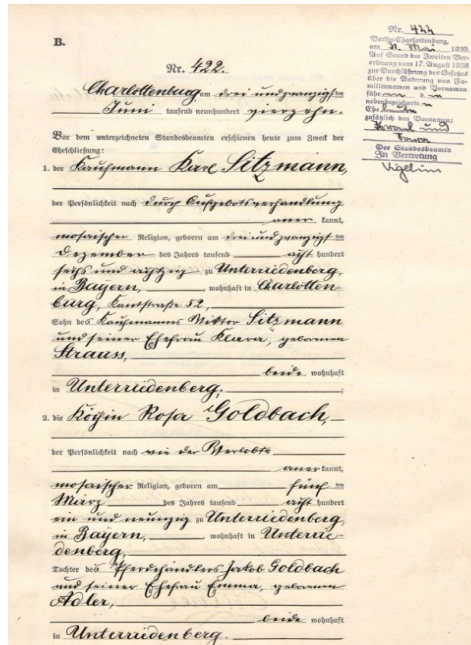 B.
Nr. 422.
Charlottenburg am drei und zwanzigsten
Juni tausend neunhundert vierzehn.
Vor dem unterzeichneten Standesbeamten erschienen heute zum Zweck der
Eheschließung:
1. der Kaufmann Karl Sitzmann,
der Persönlichkeit nach durch Aufgebotsverhandlung
anerkannt,
mosaischer Religion, geboren am drei und zwanzigsten
Dezember des Jahres tausend acht hundert
sechs und achtzig zu Unterriedenberg,
in Bayern, wohnhaft in Charlotten-
burg, Kantstraße 52,
Sohn des Kaufmannes Viktor Sitzmann
und seiner Ehefrau Klara, geborenen
Strauss,
beide wohnhaft
in Unterriedenberg;
2. die Köchin Rosa Goldbach,
der Persönlichkeit nach wie der Verlobte
anerkannt,
mosaischer Religion, geboren am fünften
März des Jahres tausend acht hundert
ein und neunzig zu Unterriedenberg,
in Bayern, wohnhaft in Unterrie-
denberg,
Tochter des Pferdehändlers Jakob Goldbach
und seiner Ehefrau Emma, geborenen
Adler,
beide wohnhaft
in Unterriedenberg.
Nr. 422
Berlin-Charlottenburg,
am 31. Mai 1939.
Auf Grund der Zweiten Ver-
ordnung vom 17. August 1938
zur Durchführung des Gesetzes
über die Änderung von Fa-
miliennamen und Vornamen
nebenbezeichnete
zusätzlich den Vornamen:
Israel und
Sara
Der Standesbeamte
In Vertretung